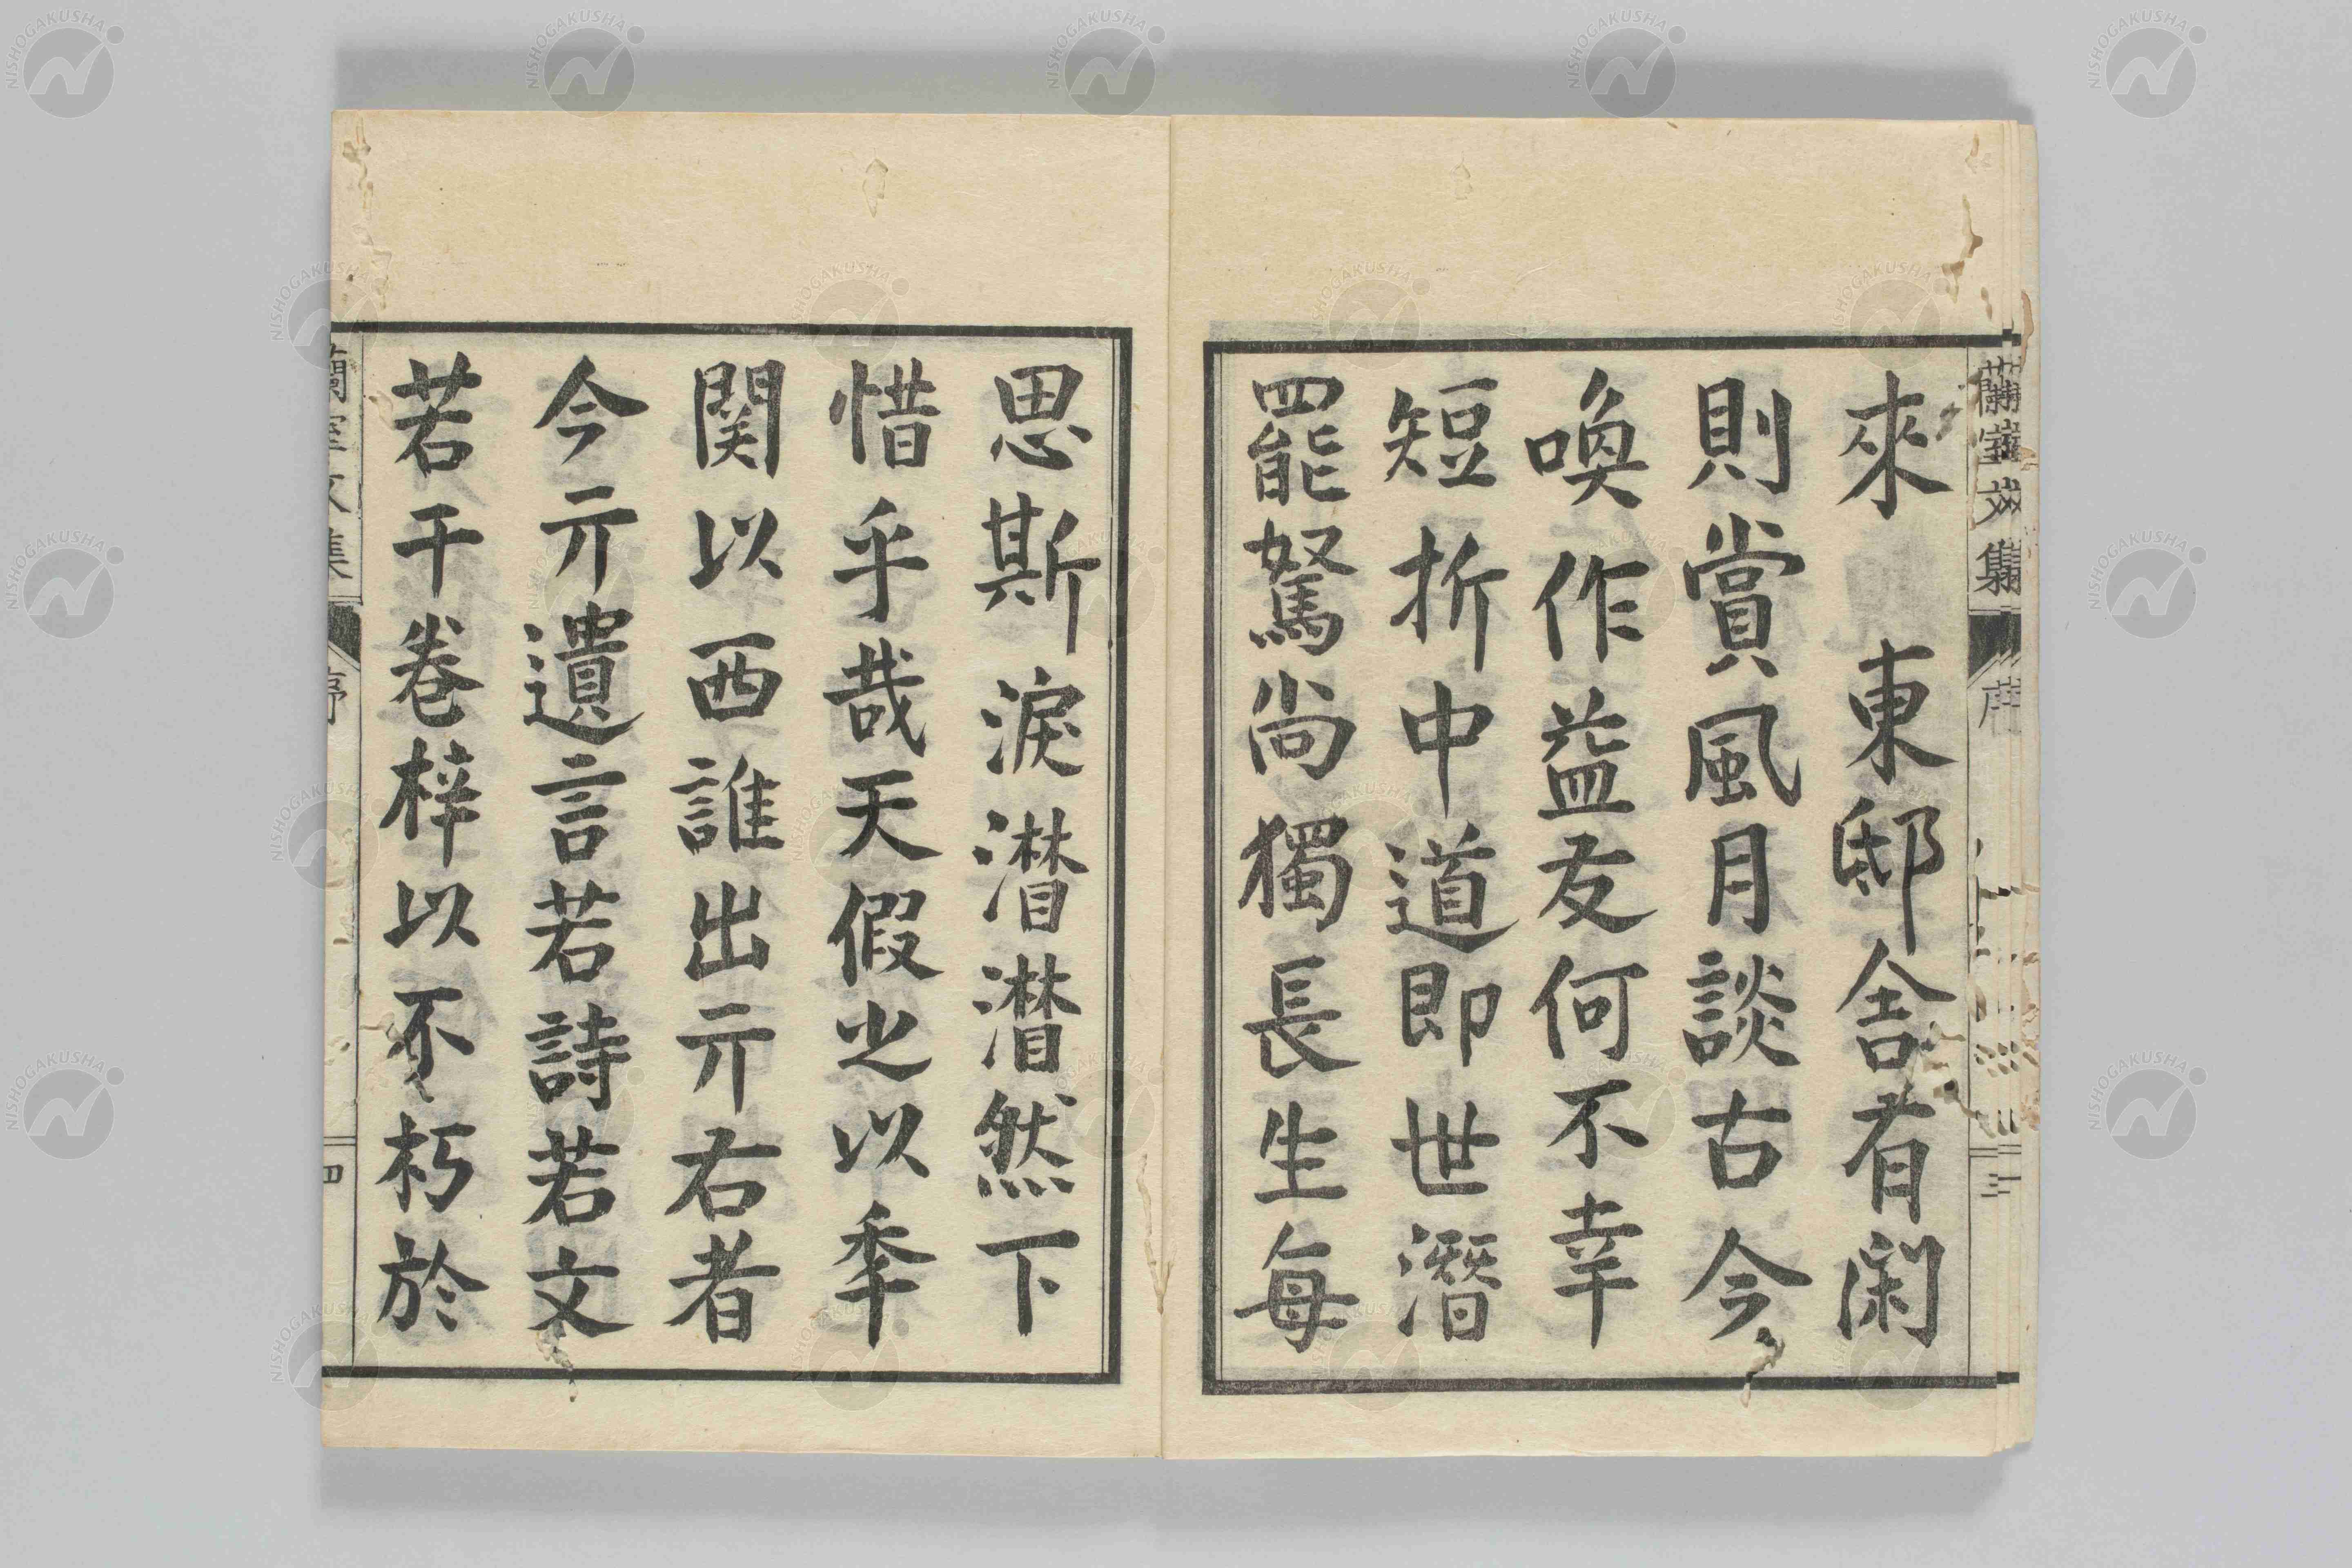 來 東邸舍有閑
則賞風月談古今
喚作益友何不幸
短折中道即世潛
罷駑尚獨長生每
思斯淚潜潜然下
惜乎哉天假之以秊
関以西誰出亓右者
今亓遺言若詩若文
若干卷梓以不朽於
蘭室文集
序
四
蘭室文集
序
三
NISHOGAKUSHA